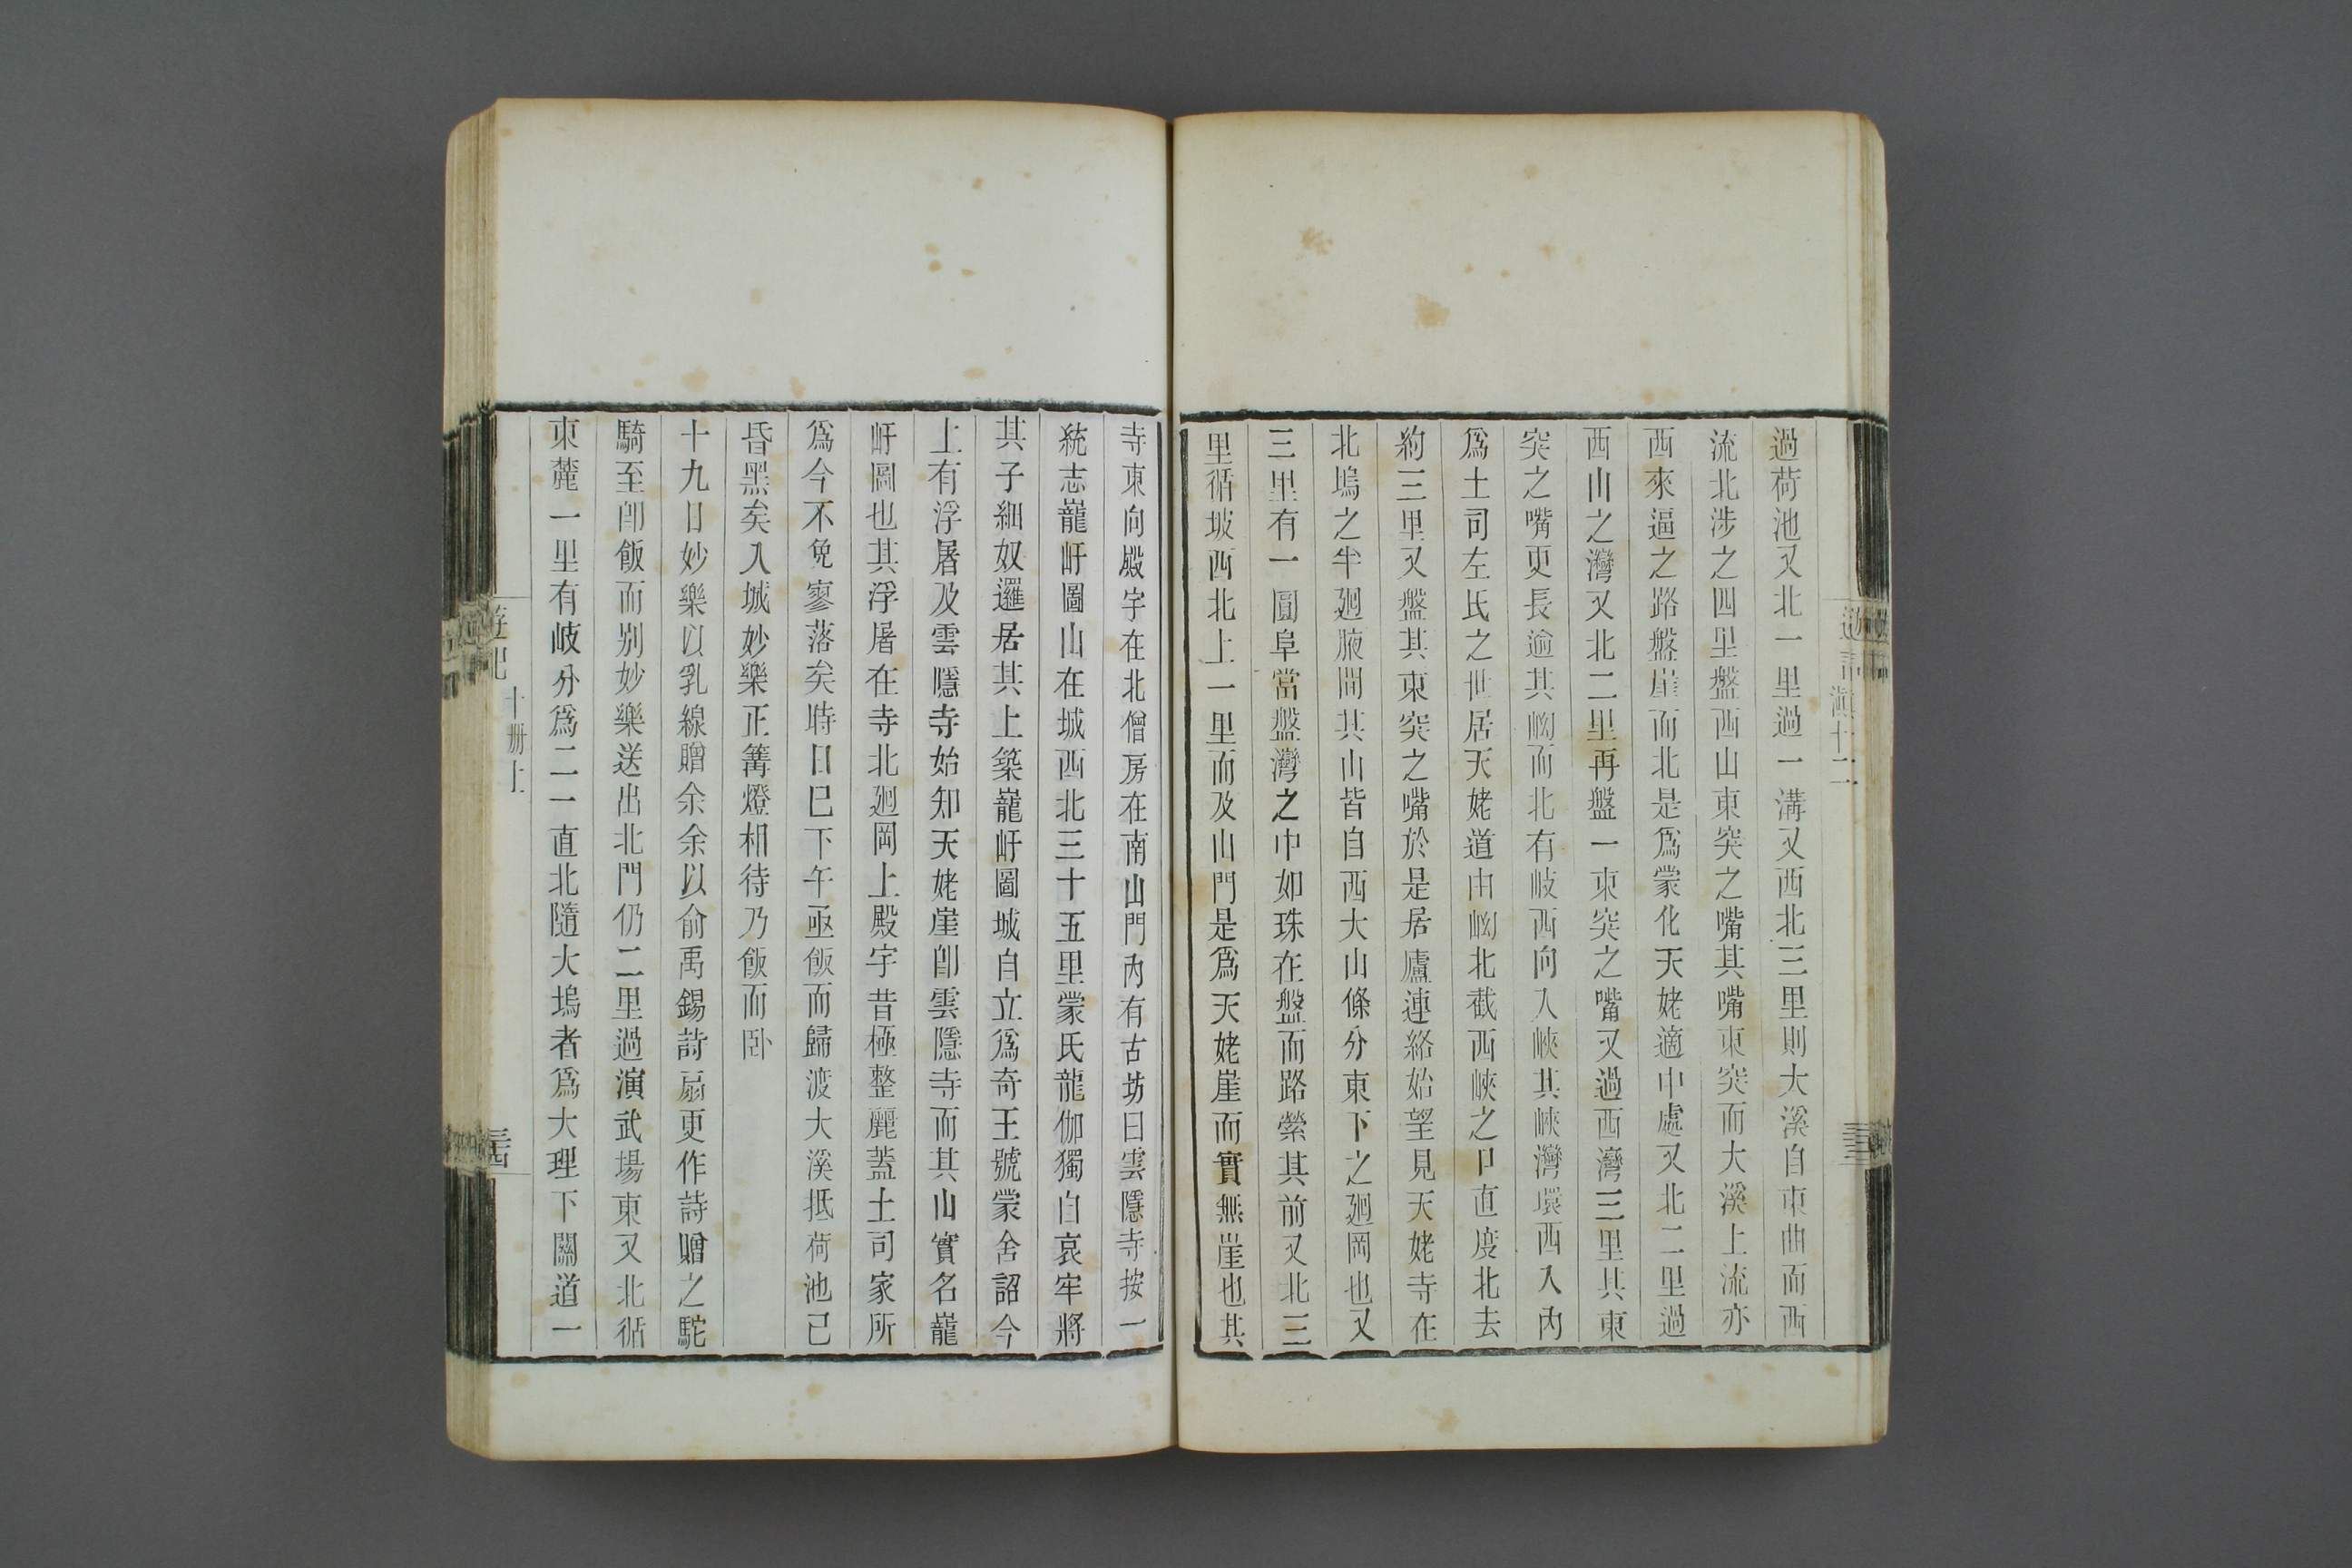 遊記滇十二
過荷池又北一里過一溝又西北三里則大溪自東曲而西
流北涉之四里盤西山東突之嘴其嘴東突而大溪上流亦
西來逼之路盤崖而北是爲蒙化天姥適中處又北二里過
西山之灣又北二里再盤一東突之嘴又過西灣三里其東
突之嘴更長逾其坳而北有岐西向入峽其峽灣環西入內
爲土司左氏之世居天姥道由坳北截西峽之口直度北去
約三里又盤其東突之嘴於是居廬連絡始望見天姥寺在
北塢之半廻腋間其山皆自西大山條分東下之廻岡也又
三里有一圓阜當盤灣之中如珠在盤而路縈其前又北三
里循坡西北上一里而及山門是爲天姥崖而實無崖也其
寺東向殿宇在北僧房在南山門內有古坊曰雲隱寺按一
統志巃屽圖山在城西北三十五里蒙氏龍伽獨自哀牢將
其子細奴邏居其上築巃屽圖城自立爲奇王號蒙舍詔今
上有浮屠及雲隱寺始知天姥崖卽雲隱寺而其山實名巃
屽圖也其浮屠在寺北廻岡上殿宇昔極整麗蓋土司家所
爲今不免寥落矣時日巳下午亟飯而歸渡大溪抵荷池已
昏黑矣入城妙樂正篝燈相待乃飯而卧
十九日妙樂以乳線贈余余以俞禹錫詩扇更作詩贈之駝
騎至卽飯而别妙樂送出北門仍二里過演武場東又北循
東麓一里有岐分爲二一直北隨大塢者爲大理下關道一
遊記
十册上
三四